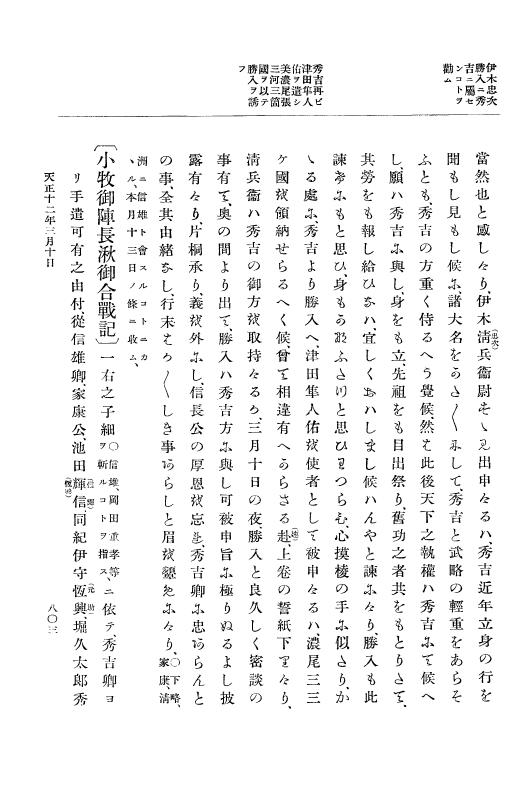 伊木忠次
勝入ニ秀
吉ニ屬セ
ンコトヲ
勸ム
秀吉再ビ
津田隼人
佑ヲ遣シ
美濃尾張
三河三箇
國ヲ以テ
勝入ヲ誘
フ
當然也と感しゝり、伊木淸兵衞尉(忠次)そゝみ出申々るハ、秀吉近年立身の行を
聞もし見もし候ふ、諸大名をあさ〳〵ふして秀吉と武略の輕重をあらそ
ふとも、秀吉の方重く侍るへう覺候、然そ此後天下之執權ハ秀吉ふて候へ
し、願ハ秀吉ふ與し、身をも立、先祖をも目出祭り、舊功之者共をもとりさて、
其勞をも報し給ひなハ、宜しくおハしまし候ハんやと諫ふ々り、勝入も此
諫ふふもと思ひ、身もあやふさりと思ひまつらむ、心摸稜の手ふ似さり、か
ゝる處ふ、秀吉より勝入へ、津田隼人佑を使者として被申々るハ、濃尾三三
ケ國を領納せらるへく候、曾て相違有へからさる趣、上卷の誓紙下りゝり、
淸兵衞ハ秀吉の御方を取持々るう、三月十日の夜、勝入と良久しく密談の
事有て、奥の間より出て、勝入ハ秀吉方ふ與し可被申旨ふ極りぬるよし披
露有々り、片桐承り、義を外ふし、信長公の厚恩を忘れ、秀吉卿ふ忠あらんと
の事、全其由緖なし、行末そろ〳〵しき事あらしと眉を顰免ふ々り、○下略、家康、淸
洲ニ信雄ト會スルコトニカ
ヽル、本月十三日ノ條ニ收ム、
〔小牧御陣長湫御合戰記〕一右之子細○信雄、岡田重孝等ヲ斬ルコトヲ指ス、ニ依テ、秀吉卿ヨ
リ手遣可有之由付、從信雄卿、家康公、池田輝信、同紀伊守恆興、堀久太郎秀
天正十二年三月十日
八〇三